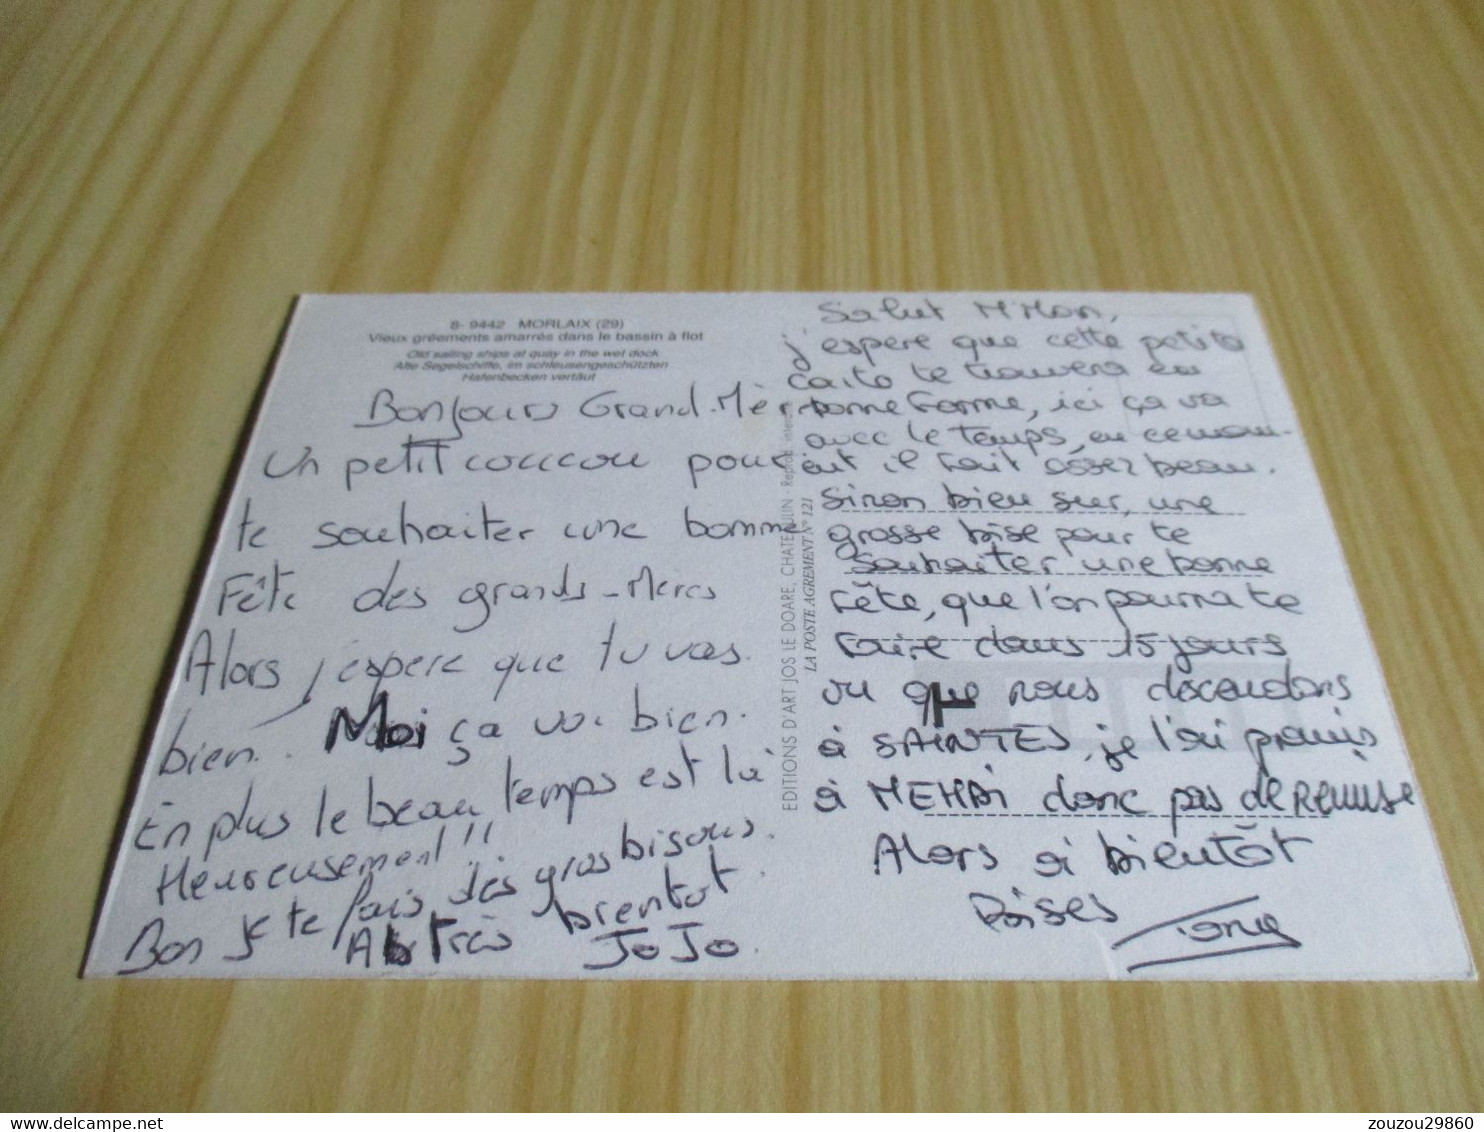 8- 9442 MORLAIX (29)
Vieux gréements amarrés dans le bassin à flot
Old sailing ships at quay in the wet dock
Alte Segelschiffe, im schleusengeschützten
Hafenbecken vertäut
Bonjours Grand-Mèr
Un petit coucou pour
te souhaiter une bomme
Fête des grands-Mères
Alors j'espere que tu vas
bien. Moi ça va bien.
En plus le beau temps est là
Heureusement!!
Bon je te fais des gros bisous.
A très bientot.
JoJo.
EDITIONS D'ART JOS LE DOARE, CHATEAULIN - Reprod. interdite
LA POSTE AGREMENT N° 121
Salut M'Man,
j'espere que cette petite
carte te trouvera en
bonne forme, ici ça va
avec le temps, en ce mom-
ent il fait assez beau.
Sinon bien sur, une
grosse bise pour te
souhaiter une bonne
fête, que l'on pourra te
faire dans 15 jours
vu que nous descendons
à SAINTES, je l'ai promis
à MEHDI donc pas de remise
Alors à bientôt
Bises
zouzou29860